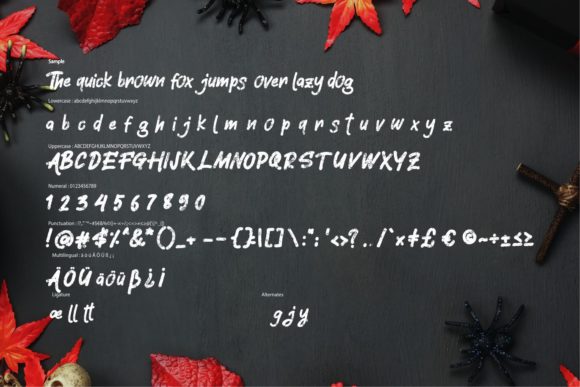 Sample
The quick brown fox jumps over lazy dog
Lowercase : abcdefghijklmnopqrstuvwxyz
a b c d e f g h i j k l m n o p q r s t u v w x y z
Uppercase : ABCDEFGHIJKLMNOPQRSTUVWXYZ
ABCDEFGHIJKLMNOPQRSTUVWXYZ
Numeral : 0123456789
1 2 3 4 5 6 7 8 9 0
Punctuation :
!@#$%^&*()_+ -- {}:|[]\:";'<>?../`×≠£ € ©~÷±≤≥
Multilingual : ä ö ü Ä Ö Ü ß ¿ ¡
ÄÖÜäöüß¿¡
Ligature Alternates
æ ll tt g j y